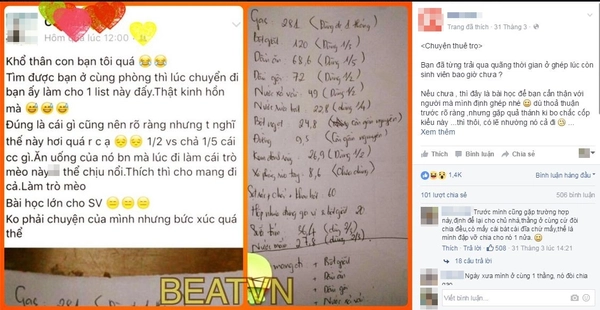 Hôm qua lúc 12:00
Khổ thân con bạn tôi quá
Tìm được bạn ở cùng phòng thì lúc chuyển đi
bạn ấy làm cho 1 list này đấy.Thật kinh hồn
mà
Đúng là cái gì cũng nên rõ ràng nhưng t nghĩ
thế này hơi quá r c ạ 1/2 vs chả 1/5 cái
cc gì.Ăn uống của nó bn mà lúc đi làm cái trò
mèo này thể chịu nổi.Thích thì cho mang
đi cả.Làm trò mèo
Bài học lớn cho SV
Ko phải chuyện của mình nhưng bức xúc quá
thể
Gas 281 (Dùng đc 1 tháng)
Bột giặt 120 (Dùng 1/2)
Dầu ăn 68,6 (Dùng 1/5)
Dầu gội 72 (Dùng 1/2)
Nước rửa bát 22,8 (Dùng 1/4)
Bột ngọt 24,8
Đường 9,5 (còn nguyên)
Kem đánh răng 26,9 (Dùng 1/2)
8,6
40
20
56,4
Nước mắm 27,8
+ Bột giặt
+ Dầu ăn
+ Dầu gội
Gas 281
BEATVN
Trang đã thích · 31 Tháng 3
<Chuyện thuê trọ>
Bạn đã từng trải qua quãng thời gian ở ghép lúc còn
sinh viên bao giờ chưa ?
Nếu chưa , thì đây là bài học để bạn cẩn thận với
người mà mình định ghép nhé dù thoả thuận
trước rõ ràng,nhưng gặp quả thánh ki bo chắc cốp
kiểu này ...thì thôi, có lẽ nhường nó cả đi ...
Xem thêm
Thích Bình luận Chia sẻ
1,4K Bình luận hàng đầu
101 lượt chia sẻ 506 bình luận
Trước mình cũng gặp trường hợp
này,định để lại cho chủ nhà,thằng ở cùng đòi
chia đều,có mấy cái bát cái đĩa chứ mấy,thế là
mình đập vỡ chia cho nó 1 nửa.
Thích · Trả lời · 308 · 31 Tháng 3 lúc 14:21
18 câu trả lời
Ngày xưa mình ở cùng 1 thằng, nó đòi chia
Viết bình luận...